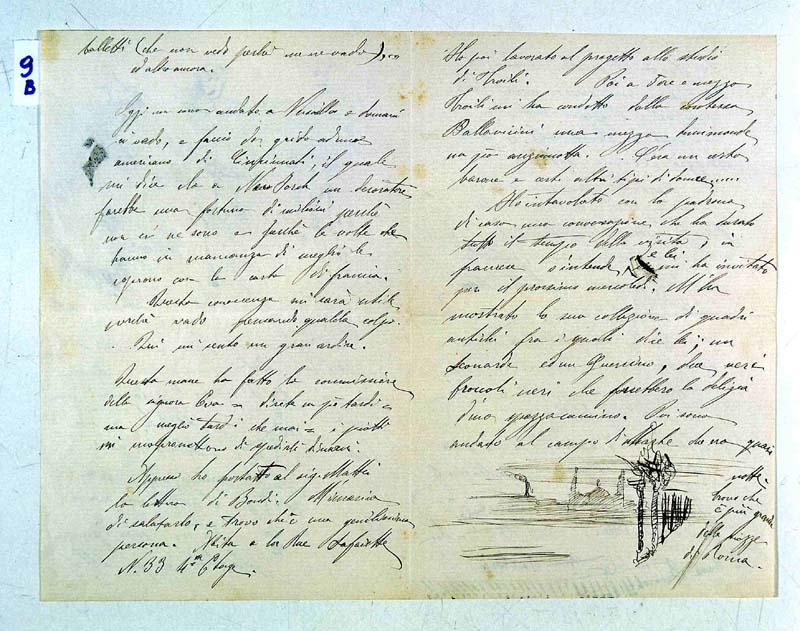 9
B
balletti (che non vedo perché me ne vado)....
ed altro ancora.
Oggi sono andato a Versailles e domani
ci vado, e faccio da guida ad uno
americano di Cincinnati il quale
mi dice che a Nuova York un decoratore
farebbe una fortuna di milioni perché
non ce ne sono e perché le volte che
hanno in mancanza di meglio le
coprono con la carta di francia.
Questa conoscenza mi sarà utile
perché vado pensando qualche colpo.
Qui mi sento un grand'ardire.
Questa mane ho fatto la commissione
della signora Eva = direte un po' tardi =
ma meglio tardi che mai = i
mi promettono di spedirli domani.
Appresi ho portato al sig. Mattei
la lettera di Bondi. M'incarica
di salutarlo, e trovo ch'è una gentilissima
persona. Abita a la Rue Lafayette
N. 33 4me Etage
Ho poi lavorato al progetto allo studio
di Troili. Poi a ore e mezzo
Troili mi ha condotto dalla contessa
Pallavicini una mezza
un po' . C'era un certo
barone e certi altri tipi di donne.....
Ho intavolato con la padrona
di casa una conversazione che ha durato
tutto il tempo della visita, in
francese s'intende, e lei mi ha invitato
per il prossimo mercoledì. M'ha
mostrato la sua collezione di quadri
antichi fra i quali dice lei, un
Leonardo ed un Guercino, due neri
broccoli neri che farebbero la delizia
d'uno spazzacamino. Poi sono
andato al campo di che era quasi
notte.
Trovo che
è più grande
della piazza
di Roma.